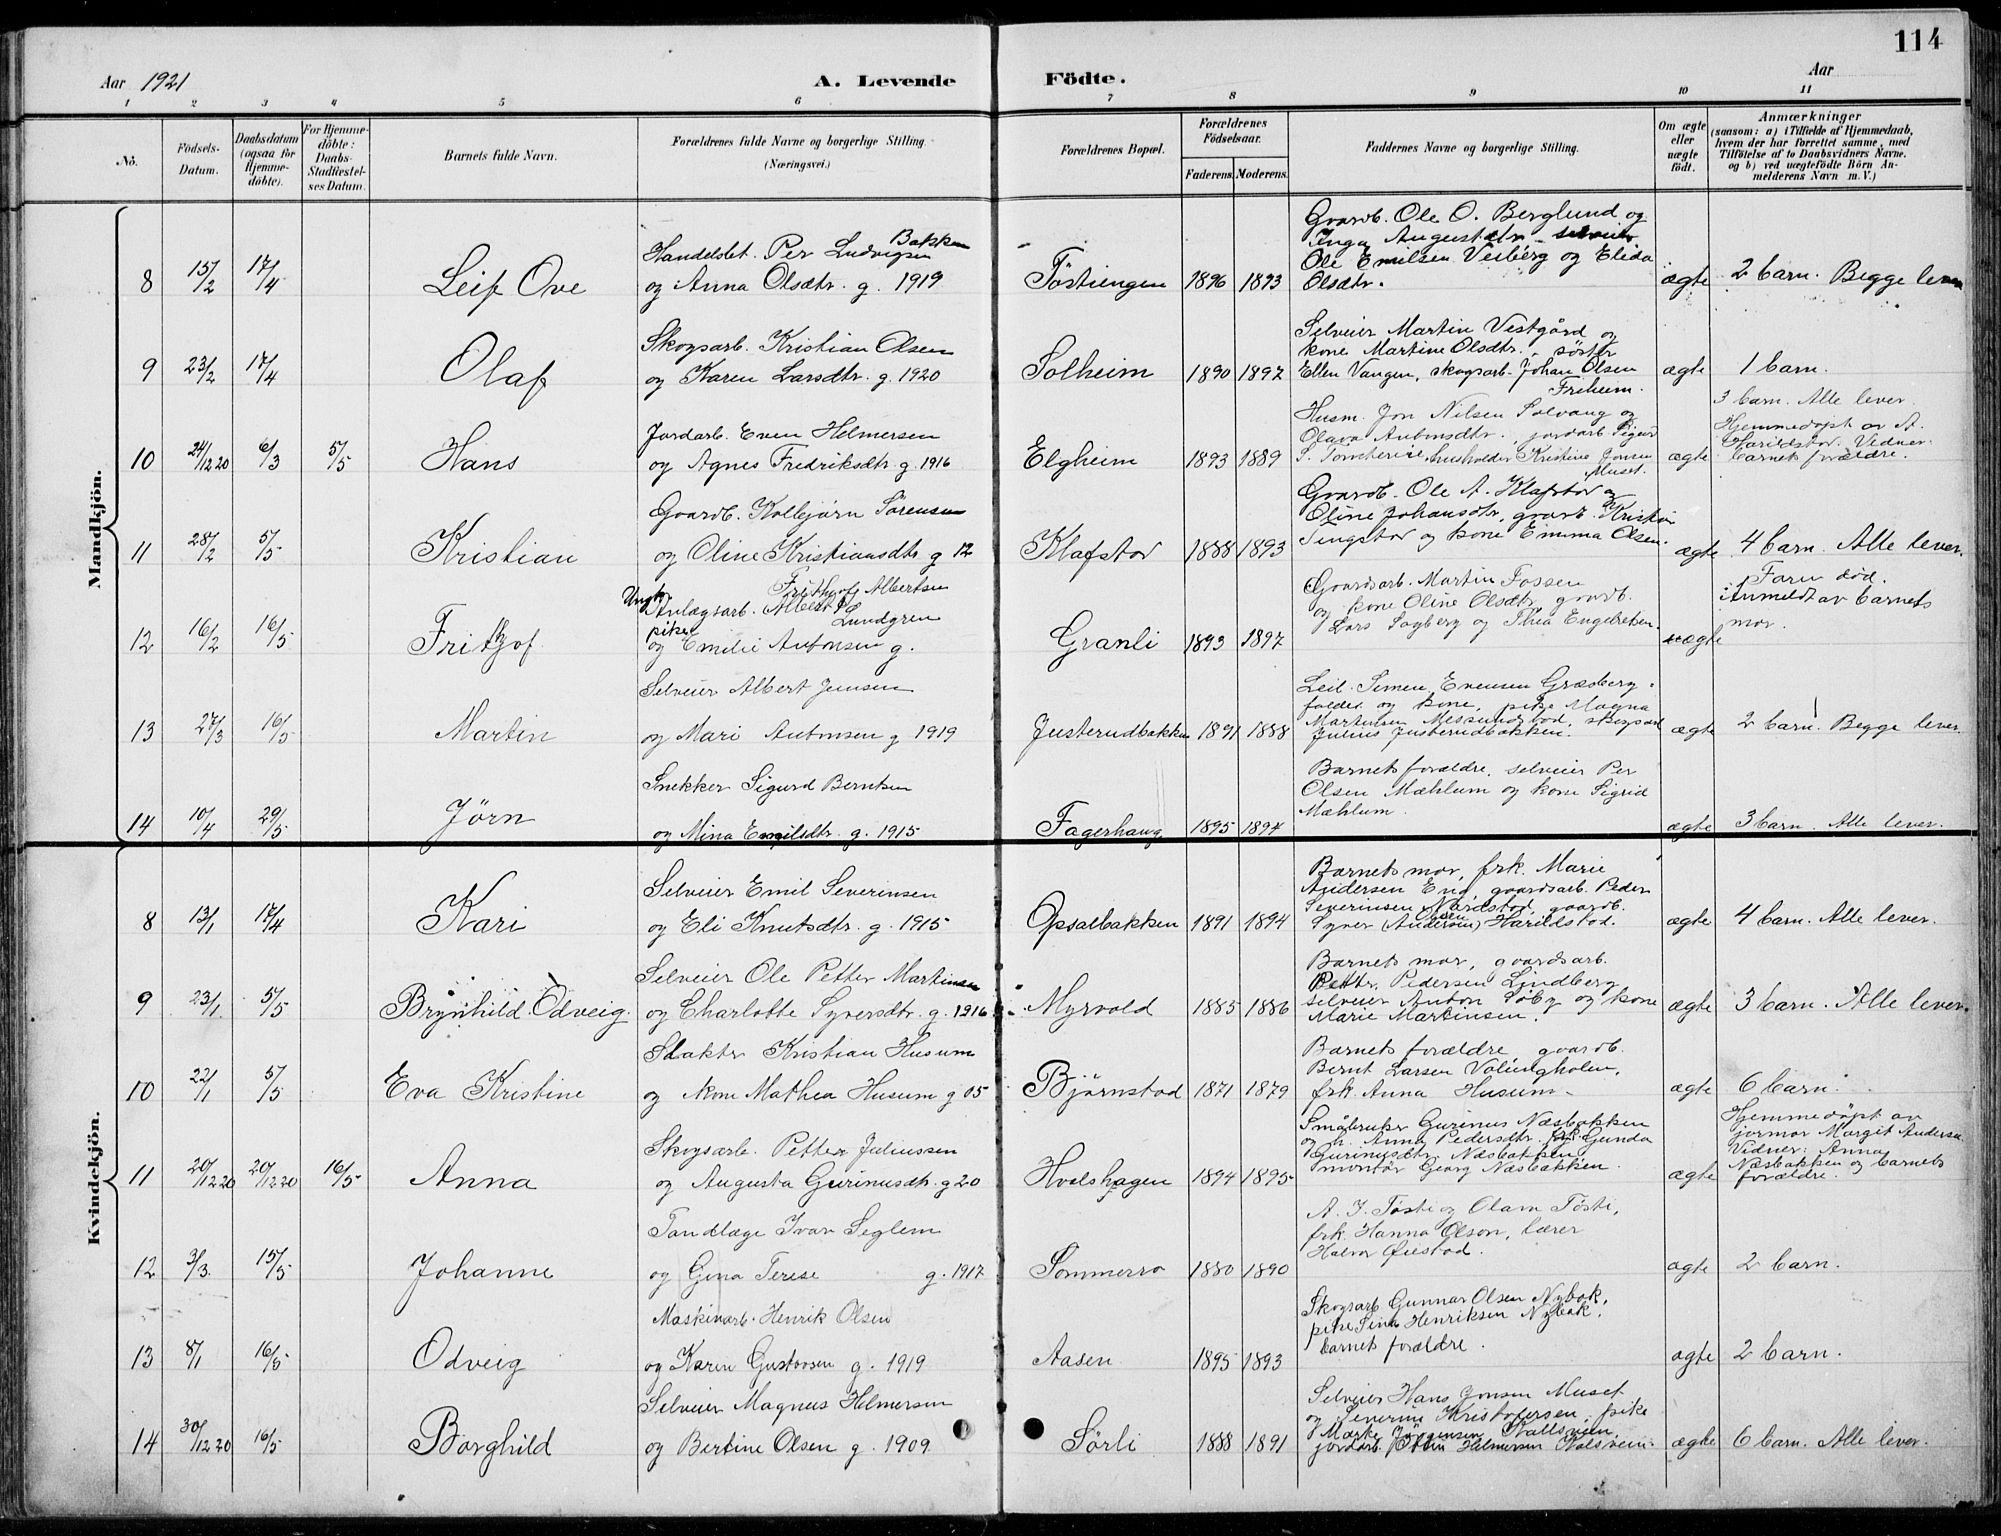 114
Aar 1921
A. Levende
Födte.
Aar
1 2 3 4 5 6 7 8 9 10 11
No.
Födsels-Datum.
Daabsdatum (ogsaa for Hjemme-döbte).
For Hjemme-döbte: Daabs-Stadfæstel-ses Datum.
Barnets fulde Navn.
Forældrenes fulde Navne og borgerlige Stilling
(Næringsvei.)
Forældrenes Bopæl.
Forældrenes Födselsaar.
Faderens. Moderens.
Faddernes Navne og borgerlige Stilling.
Om ægte eller uægte födt.
Anmærkninger
(saasom: a) i Tilfælde af Hjemmedaab,
hvem der har forrettet samme, med
Tilföielse af to Daabsvidners Navne.
og b) ved uægtefödte Börn An-
melderens Navn m. V.)
Mandkjön.
8 15/2 17/4 Leif Ove
Handelsbet. Per Ludvigsen Bakken
og Anna Olsdtr. g. 1919
Töstiengen 1896 1893
Gaardb. Ole O. Berglund og
Inga Augustdtr. selveier
Ole Emilsen Veiberg og Elida
Olsdtr.
ægte 2 barn. Begge lever
9 23/2 17/4 Olaf
Skogsarb. Kristian Olsen
og Karen Larsdtr. g. 1920
Solheim 1890 1897
Selveier Martin Vestgård og
kone Martine Olsdtr., söster
Ellen Vangen, skogsarb. Johan Olsen
Friheim.
ægte 1 barn.
10 24/12 20 6/3 5/5 Hans
Jordarb. Even Helmersen
og Agnes Fredriksdtr. g. 1916
Elgheim 1893 1889
Husm. Jon Nilsen Solvang og
Olava Antonsdtr., jordarb. Sigurd
S. husholder Kristine Jonsen
Muset.
ægte
3 barn. Alle lever.
Hjemmedöpt av A.
Harildstad. Vidner:
barnets forældre.
11 28/2 5/5 Kristian
Gaardb. Kolbjørn Sörensen
og Oline Kristiansdtr g 12
Klafstad 1888 1893
Gaardb. Ole A. Klafstad og
Oline Johansdtr, gaardb. Kristian
Tingstad og kone Emma Olsen.
ægte 4 barn. Alle lever.
12 16/2 16/5 Frithjof
Ungk. Frithjof Albertsen
Anlægsarb. Albert Lundgren
pike
og Emilie Antonsen g.
Granli 1893 1897
Gaardsarb. Martin Fossen
og kone Oline Olsdtr, gaardb.
Lars Sagberg og Thea Engebretsen.
uægte
Faren död.
Anmeldt av barnets
mor.
13 27/3 16/5 Martin
Selveier Albert Jensen
og Mari Antonsen g 1919
Justerudbakken 1891 1888
Leil. Simen Evensen Græsberg-
faldet og kone, pike Magna
Martinsen Messundstod, skogsarb
Julius Justerudbakken.
ægte 2 barn. Begge lever.
14 10/4 29/5 Jørn
Snekker Sigurd Berntsen
og Mina Emilsdtr. g. 1915
Fagerhaug 1895 1894
Barnets forældre, selveier Per
Olsen Mæhlum og kone Sigrid
Mæhlum.
ægte 3 barn. Alle lever.
Kvindekjön.
8 13/1 17/4 Kari
Selveier Emil Severinsen
og Eli Knutsdtr. g. 1915
Opsalbakken 1891 1894
Barnets mor, frk. Marie
Andersen Eng, gaardsarb. Peder
Severinsen Naristad, gaardb.
Syver (Andersen) Olsen Harildstad.
ægte 4 barn. Alle lever.
9 23/1 5/5 Brynhild Odveig.
Selveier Ole Petter Martinsen
og Charlotte Syversdtr. g. 1916
Myrvold 1885 1886
Barnets mor, gaardsarb.
Petter Pedersen Lindberg
selveier Anton Söby og kone
Marie Martinsen.
ægte 3 barn. Alle lever.
10 22/1 5/5 Eva Kristine
Slakter Kristian Husum
og kone Mathea Husum g 05
Björnstad 1871 1879
Barnets forældre, gaardb.
Bernt Larsen Volungholen,
frk. Anna Husum.
ægte 6 barn.
11 20/12 20 20/12 20 16/5 Anna
Skogsarb. Petter Juliussen
og Augusta Gurinusdtr. g 20
Hvalshagen 1894 1895
Småbruker Gurinus Næsbakken
og h. Anna Pedersdtr. frk. Gunda
Gurinusdtr. Næsbakken
montör Georg Næsbakken.
ægte
Hjemmedöpt av
jormor Margit Andersen
Vidner: Anna
Næsbakken og barnets
forældre.
12 3/3. 15/5 Johanne
Tandlæge Ivar Seglem
og Gina Terese g. 1917
Sommerro 1880 1890
A. J. Töste og Olam Tösti,
frk. Hanna Olson, lærer
Halvor Øiestad.
ægte 2 barn.
13 8/1 16/5 Odveig
Maskinarb. Henrik Olsen
og Karen Gustavsen g. 1919
Aasen 1895 1893
Skogsarb Gunnar Olsen Nybak,
pike Sina Henriksen Nybak,
barnets forældre.
ægte 2 barn.
14 30/12 20 16/5 Borghild
Selveier Magnus Helmersen
og Bertine Olsen g. 1909
Sörli 1888 1891
Selveier Hans Jonsen Muset
og Severine Kristofersen, pike
Marte Jörgensen Kalsveen
jordarb. Helmersen Kalsveen.
ægte 6 barn. Alle lever.